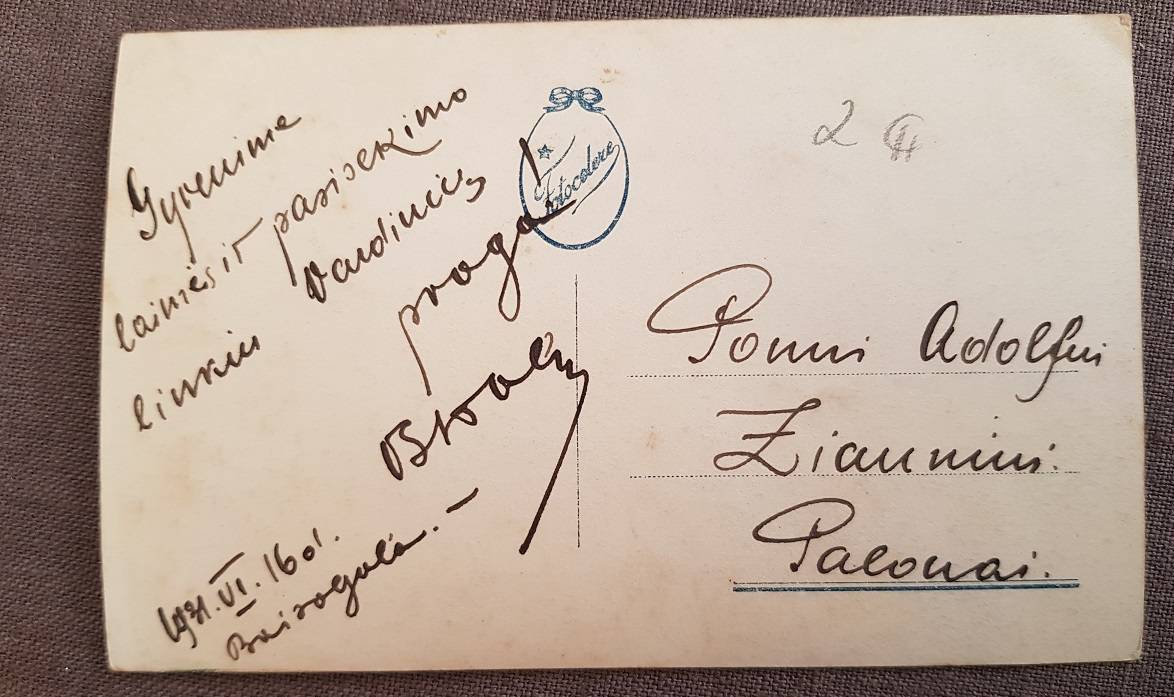 Gyvenime
laimės ir pasisekimo
linkiu Vardinių
proga!
1931.VI.16 d.
Baisogala. –
Fotocolere
2
Ponui Adolfui
Ziaunini.
Palonai.